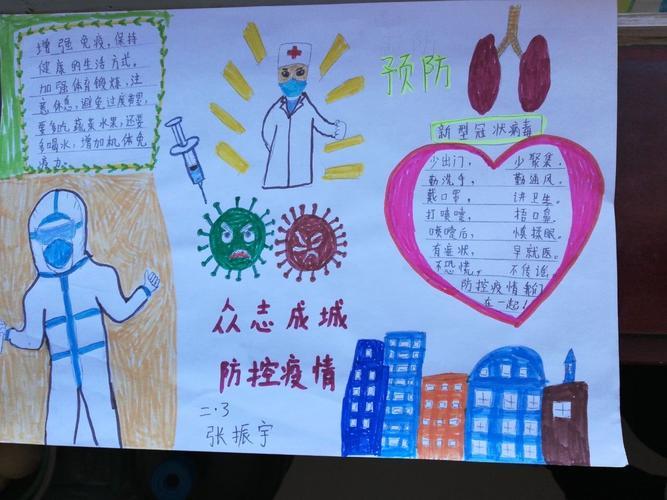 增强免疫,保持
健康的生活方式。
加强体育锻炼,注
意休息,避免过度劳累,
要多吃蔬菜水果,还要
多喝水,增加机体免
疫力。
预防
新型冠状病毒
少出门, 少聚集。
勤洗手, 勤通风。
戴口罩, 讲卫生。
打喷嚏, 捂口鼻。
喷嚏后, 慎揉眼。
有症状, 早就医。
不恐慌, 不传谣。
防控疫情我们
在一起!
众志成城
防控疫情
二·3
张振宇